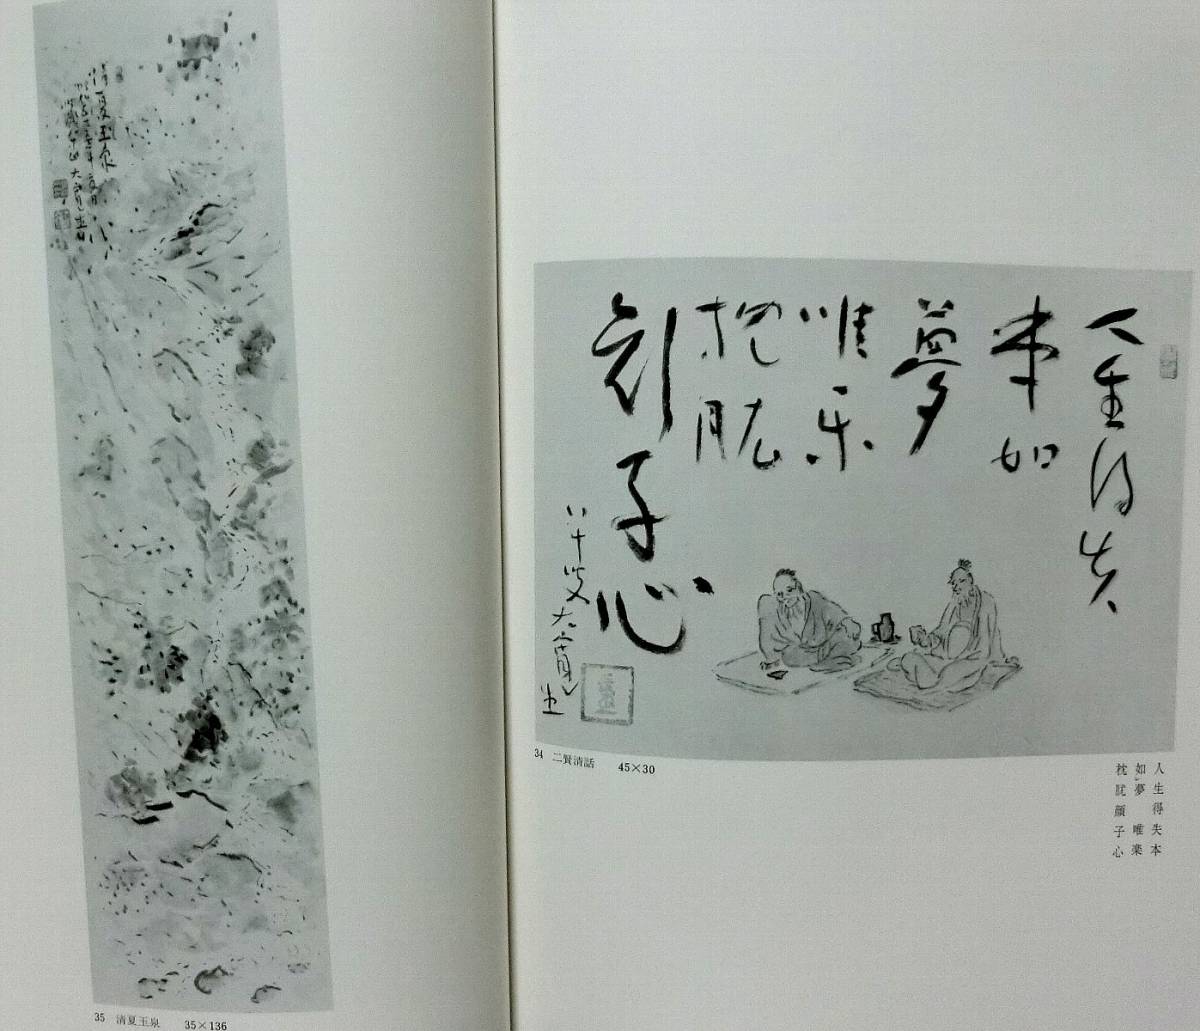 人生得失
本如
夢
唯乐
枕肱
顔子心
八十叟
34 二賢清話 45×30
人生得失本
如レ夢 唯楽
枕肱顔子心
清夏玉泉
35 清夏玉泉 35×136